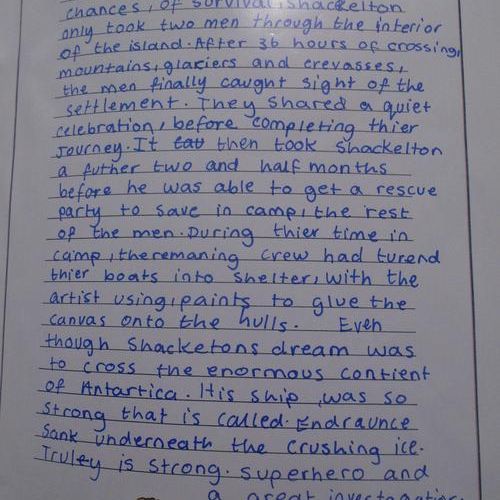 chances, of survival, Shackelton
only took two men through the interior
of the island. After 36 hours of crossing,
mountains, glaciers and crevasses,
the men finally caught sight of the
settlement. They shared a quiet
celebration, before completing thier
Journey. It tau then took Shackelton
a futher two and half months
before he was able to get a rescue
party to save in camp, the rest
of the men. During thier time in
camp, the remaning crew had turend
thier boats into shelter, with the
artist using, paints to glue the
canvas onto the hulls. Even
though Shacketons dream was
to cross the enormous contient
of Antartica. His ship, was so
strong that is called. Endraunce
Sank underneath the crushing ice.
Truley is strong. superhero and
a great